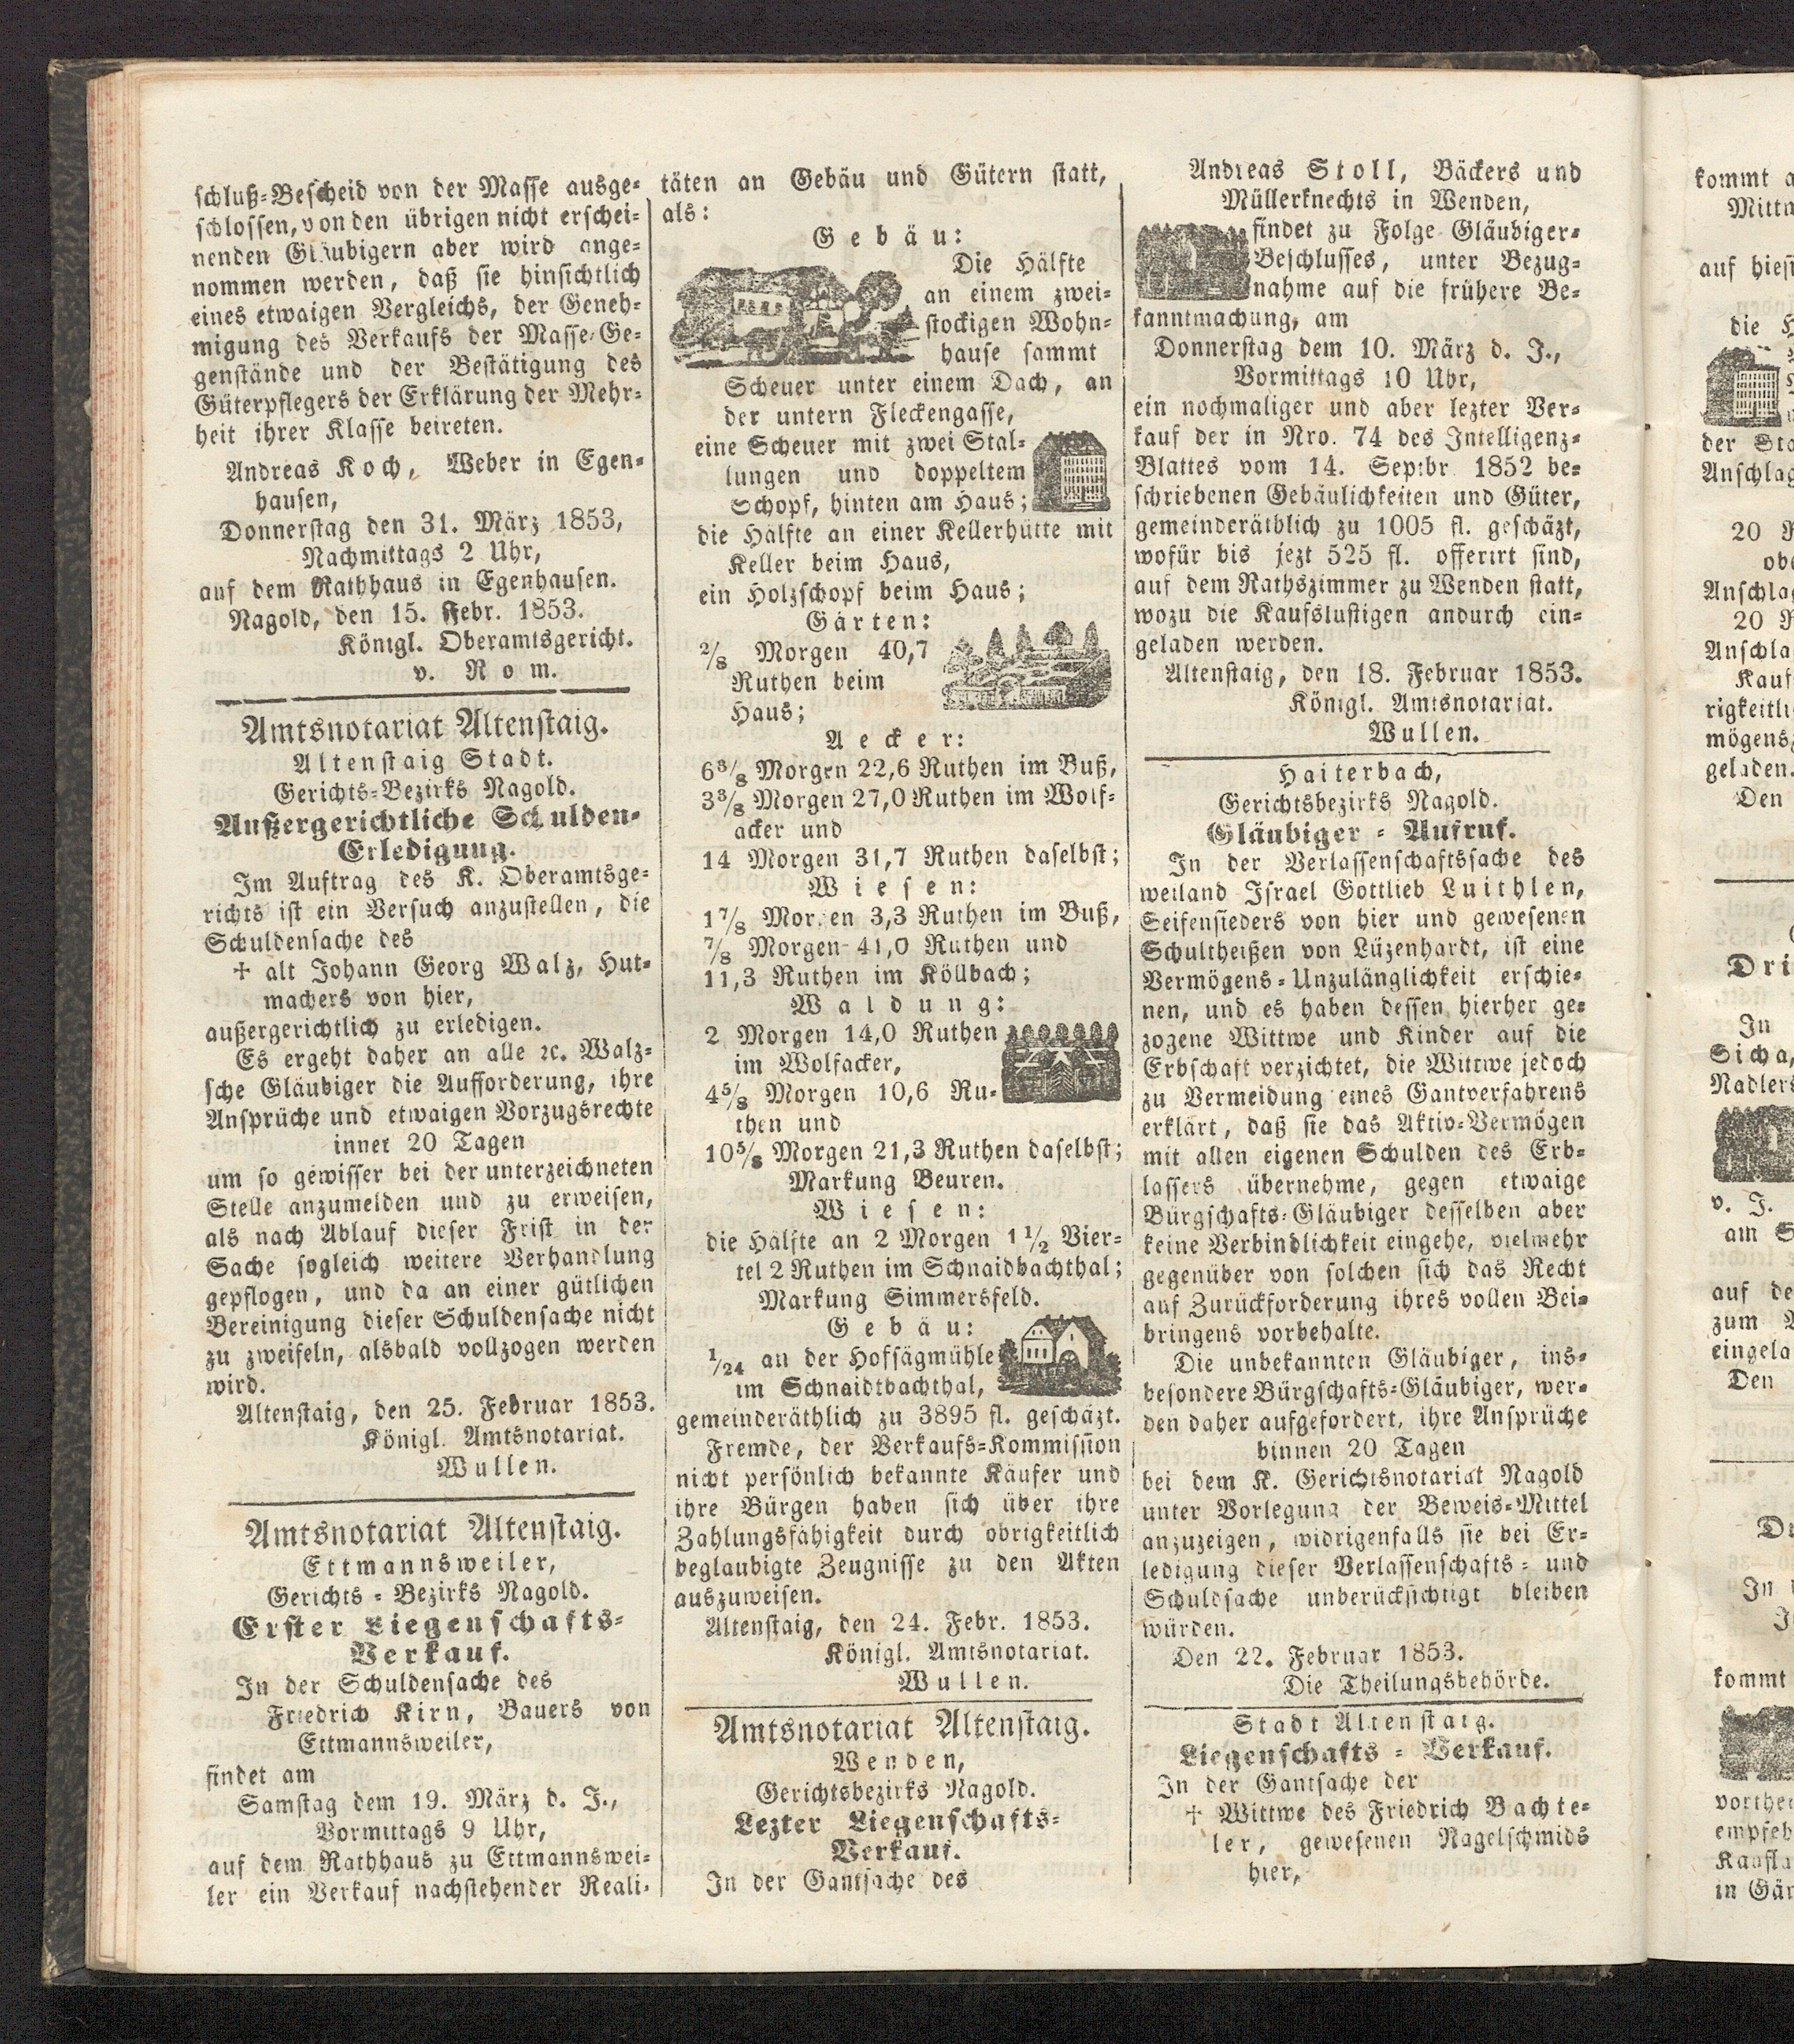 schluß-Bescheid von der Masse ausge-
schlossen, von den übrigen nicht erschei-
nenden Gläubigern aber wird ange-
nommen werden, daß sie hinsichtlich
eines etwaigen Vergleichs, der Geneh-
migung des Verkaufs der Masse-Ge-
genstände und der Bestätigung des
Güterpflegers der Erklärung der Mehr-
heit ihrer Klasse beireten.
Andreas Koch, Weber in Egen-
hausen,
Donnerstag den 31. März 1853,
Nachmittags 2 Uhr,
auf dem Rathhaus in Egenhausen.
Nagold, den 15. Febr. 1853.
Königl. Oberamtsgericht.
v. Rom.
Amtsnotariat Altenstaig.
Altenstaig Stadt.
Gerichts-Bezirks Nagold.
Außergerichtliche Schulden-
Erledigung.
Im Auftrag des K. Oberamtsge-
richts ist ein Versuch anzustellen, die
Schuldensache des
† alt Johann Georg Walz, Hut-
machers von hier,
außergerichtlich zu erledigen.
Es ergeht daher an alle ꝛc. Walz-
sche Gläubiger die Aufforderung, ihre
Ansprüche und etwaigen Vorzugsrechte
innet 20 Tagen
um so gewisser bei der unterzeichneten
Stelle anzumelden und zu erweisen,
als nach Ablauf dieser Frist in der
Sache sogleich weitere Verhandlung
gepflogen, und da an einer gütlichen
Bereinigung dieser Schuldensache nicht
zu zweifeln, alsbald vollzogen werden
wird.
Altenstaig, den 25. Februar 1853.
Königl. Amtsnotariat.
Wullen.
Amtsnotariat Altenstaig.
Ettmannsweiler,
Gerichts-Bezirks Nagold.
Erster Liegenschafts-
Verkauf.
In der Schuldensache des
Friedrich Kirn, Bauers von
Ettmannsweiler,
findet am
Samstag dem 19. März d. J.,
Vormittags 9 Uhr,
auf dem Rathhaus zu Ettmannswei-
ler ein Verkauf nachstehender Reali-
täten an Gebäu und Gütern statt,
als:
Gebäu:
Die Hälfte
an einem zwei-
stockigen Wohn-
hause sammt
Scheuer unter einem Dach, an
der untern Fleckengasse,
eine Scheuer mit zwei Stal-
lungen und doppeltem
Schopf, hinten am Haus;
die Hälfte an einer Kellerhütte mit
Keller beim Haus,
ein Holzschopf beim Haus;
Gärten:
2/8 Morgen 40,7
Ruthen beim
Haus;
Aecker:
6 3/8 Morgen 22,6 Ruthen im Buß,
3 3/8 Morgen 27,0 Ruthen im Wolf-
acker und
14 Morgen 31,7 Ruthen daselbst;
Wiesen:
1 7/8 Morgen 3,3 Ruthen im Buß,
7/8 Morgen 41,0 Ruthen und
11,3 Ruthen im Köllbach;
Waldung:
2 Morgen 14,0 Ruthen
im Wolfacker,
4 5/8 Morgen 10,6 Ru-
then und
10 5/8 Morgen 21,3 Ruthen daselbst;
Markung Beuren.
Wiesen:
die Hälfte an 2 Morgen 1 1/2 Vier-
tel 2 Ruthen im Schnaidbachthal;
Markung Simmersfeld.
Gebäu:
1/24 an der Hofsägmühle
im Schnaidtbachthal,
gemeinderäthlich zu 3895 fl. geschäzt.
Fremde, der Verkaufs-Kommission
nicht persönlich bekannte Käufer und
ihre Bürgen haben sich über ihre
Zahlungsfähigkeit durch obrigkeitlich
beglaubigte Zeugnisse zu den Akten
auszuweisen.
Altenstaig, den 24. Febr. 1853.
Königl. Amtsnotariat.
Wullen.
Amtsnotariat Altenstaig.
Wenden,
Gerichtsbezirks Nagold.
Lezter Liegenschafts-
Verkauf.
In der Gantsache des
Andreas Stoll, Bäckers und
Müllerknechts in Wenden,
findet zu Folge Gläubiger-
Beschlusses, unter Bezug-
nahme auf die frühere Be-
kanntmachung, am
Donnerstag dem 10. März d. J.,
Vormittags 10 Uhr,
ein nochmaliger und aber lezter Ver-
kauf der in Nro. 74 des Intelligenz-
Blattes vom 14. Septbr. 1852 be-
schriebenen Gebäulichkeiten und Güter,
gemeinderäthlich zu 1005 fl. geschäzt,
wofür bis jezt 525 fl. offerirt sind,
auf dem Rathszimmer zu Wenden statt,
wozu die Kaufslustigen andurch ein-
geladen werden.
Altenstaig, den 18. Februar 1853.
Königl. Amtsnotariat.
Wullen.
Haiterbach,
Gerichtsbezirks Nagold.
Gläubiger-Aufruf.
In der Verlassenschaftssache des
weiland Israel Gottlieb Luithlen,
Seifensieders von hier und gewesenen
Schultheißen von Lüzenhardt, ist eine
Vermögens-Unzulänglichkeit erschie-
nen, und es haben dessen hierher ge-
zogene Wittwe und Kinder auf die
Erbschaft verzichtet, die Wittwe jedoch
zu Vermeidung eines Gantverfahrens
erklärt, daß sie das Aktiv-Vermögen
mit allen eigenen Schulden des Erb-
lassers übernehme, gegen etwaige
Bürgschafts-Gläubiger desselben aber
keine Verbindlichkeit eingehe, vielmehr
gegenüber von solchen sich das Recht
auf Zurückforderung ihres vollen Bei-
bringens vorbehalte.
Die unbekannten Gläubiger, ins-
besondere Bürgschafts-Gläubiger, wer-
den daher aufgefordert, ihre Ansprüche
binnen 20 Tagen
bei dem K. Gerichtsnotariat Nagold
unter Vorlegung der Beweis-Mittel
anzuzeigen, widrigenfalls sie bei Er-
ledigung dieser Verlassenschafts- und
Schuldsache unberücksichtigt bleiben
würden.
Den 22. Februar 1853.
Die Theilungsbehörde.
Stadt Altenstaig.
Liegenschafts-Verkauf.
In der Gantsache der
† Wittwe des Friedrich Bachte-
ler, gewesenen Nagelschmids
hier,
kommt
auf
die
der
Anschlag
20
Anschla
20
Anschla
Kauf
rigkeitli
mögens
geladen.
Den
Dri
In
Sicha,
Nadlers
v. J.
am
auf de
zum
eingela
Den
In
kommt
empfeh
in Gär